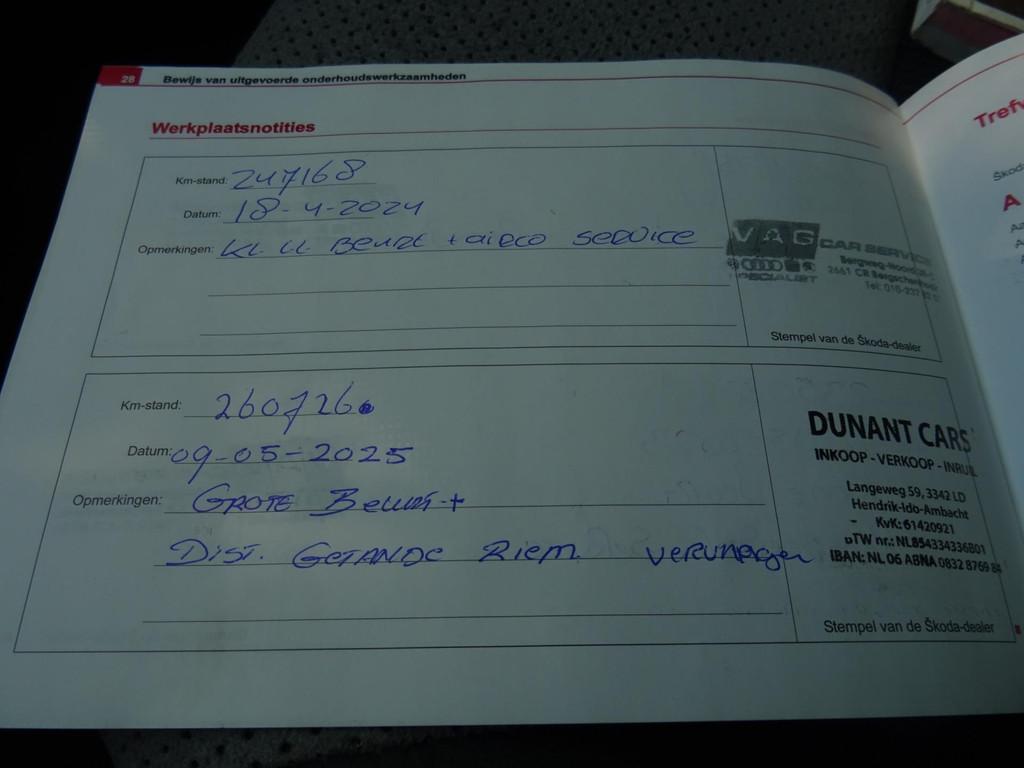 28 Bewijs van uitgevoerde onderhoudswerkzaamheden
Werkplaatsnotities
Km-stand: 247168
Datum: 18-4-2024
Opmerkingen: Kl. Beurt + airco service
VAG CAR SERVICE
SPECIALIST
Bergweg-Noord
2661 CR Bergschenhoek
Tel: 010-
Stempel van de Škoda-dealer
Km-stand: 260726
Datum: 09-05-2025
Opmerkingen: GROTE Beurt +
DIST. GETANDE RIEM. vervangen
DUNANT CARS
INKOOP - VERKOOP - INRUIL
Langeweg 59, 3342 LD
Hendrik-Ido-Ambacht
KvK: 61420921
BTW nr.: NL854334336B01
IBAN: NL 06 ABNA 0832 8769 84
Stempel van de Škoda-dealer
Trefw
Škoda
A